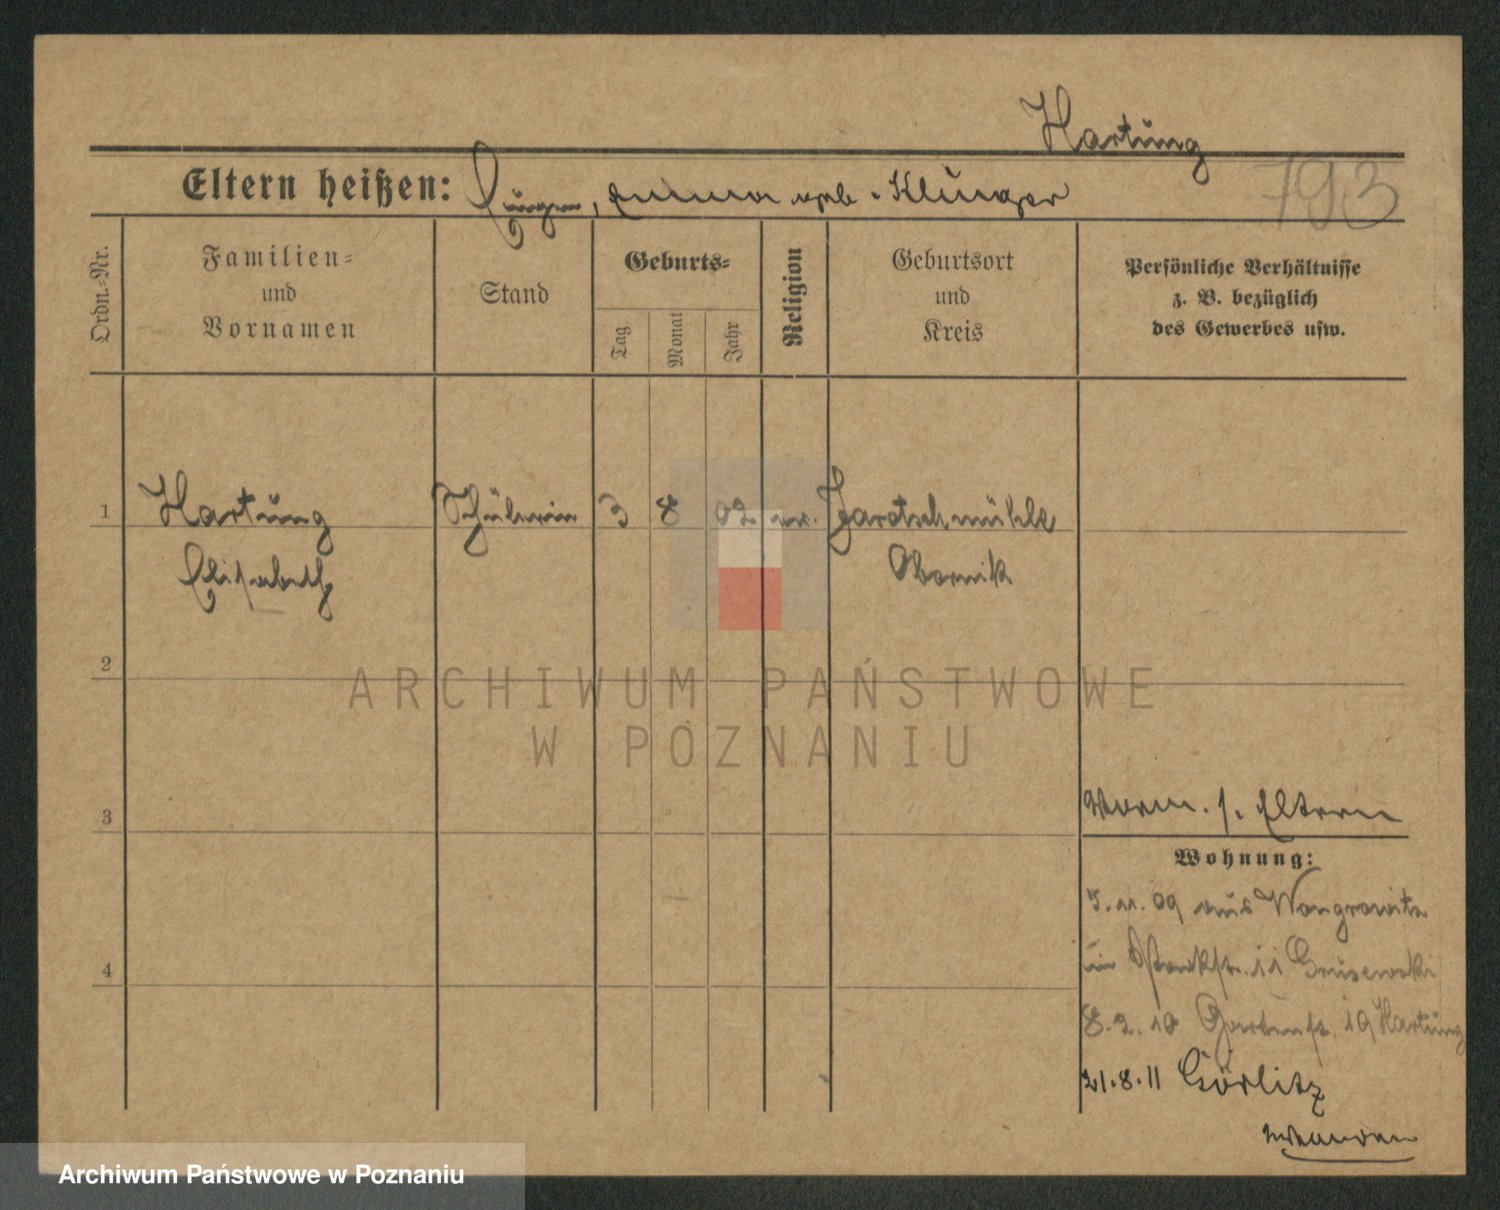 Hartung
Eltern heißen: Eugen, Emma geb. Klünger
793
Ordn.-Nr.
Familien-
und
Vornamen
Stand
Geburts-
Tag
Monat
Jahr
Religion
Geburtsort
und
Kreis
Persönliche Verhältnisse
z. B. bezüglich
des Gewerbes usw.
1 Hartung Schülerin 3 8 02 ev. Jaratschmühle
Elisabeth Obornik
2
ARCHIWUM PAŃSTWOWE
W POZNANIU
3
Vorm. s. Eltern
Wohnung:
5.11.09 aus Wongrowitz
4
11
8.2.10 Gartenstr. 19 Hartung
21.8.11 Görlitz
Archiwum Państwowe w Poznaniu